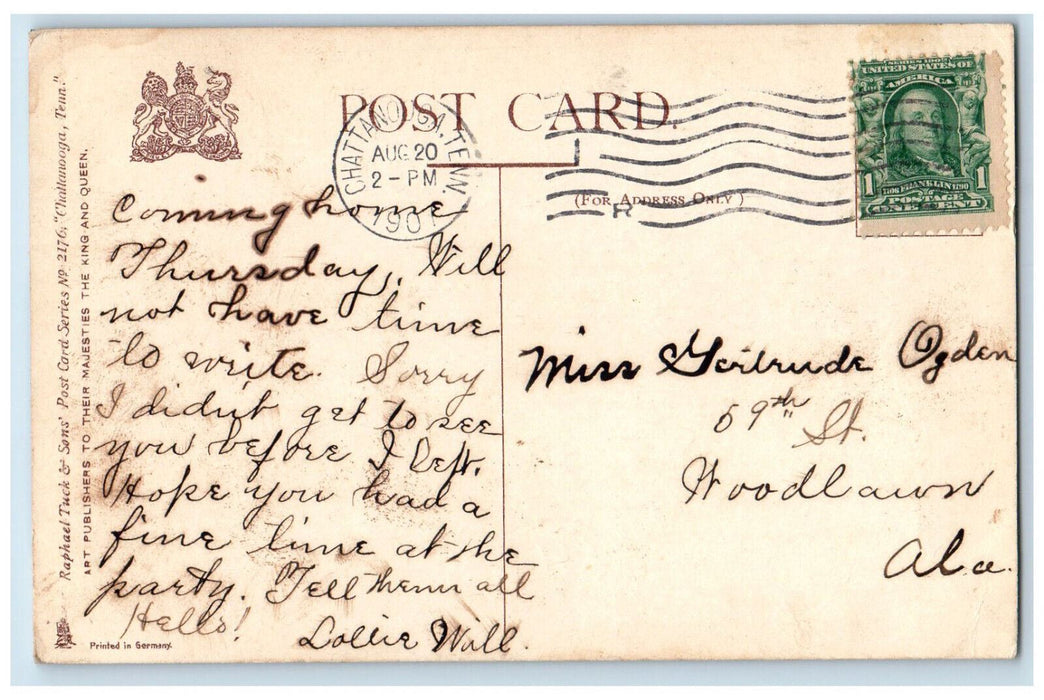 POST CARD.
CHATTANOOGA, TENN.
AUG 20
2 - PM
1907
SERIES 1902
UNITED STATES OF
AMERICA
1 1706 FRANKLIN 1790 1
POSTAGE
ONE CENT
(FOR ADDRESS ONLY)
Raphael Tuck & Sons' Post Card Series No. 2176, "Chattanooga, Tenn."
ART PUBLISHERS TO THEIR MAJESTIES THE KING AND QUEEN.
Coming home
Thursday, Will
not have time
to write. Sorry
I didn't get to see
you before I left.
Hope you had a
fine time at the
party. Tell them all
Hello!
Lollie Will.
Miss Gertrude Ogden
59th St.
Woodlawn
Ala.
Printed in Germany.